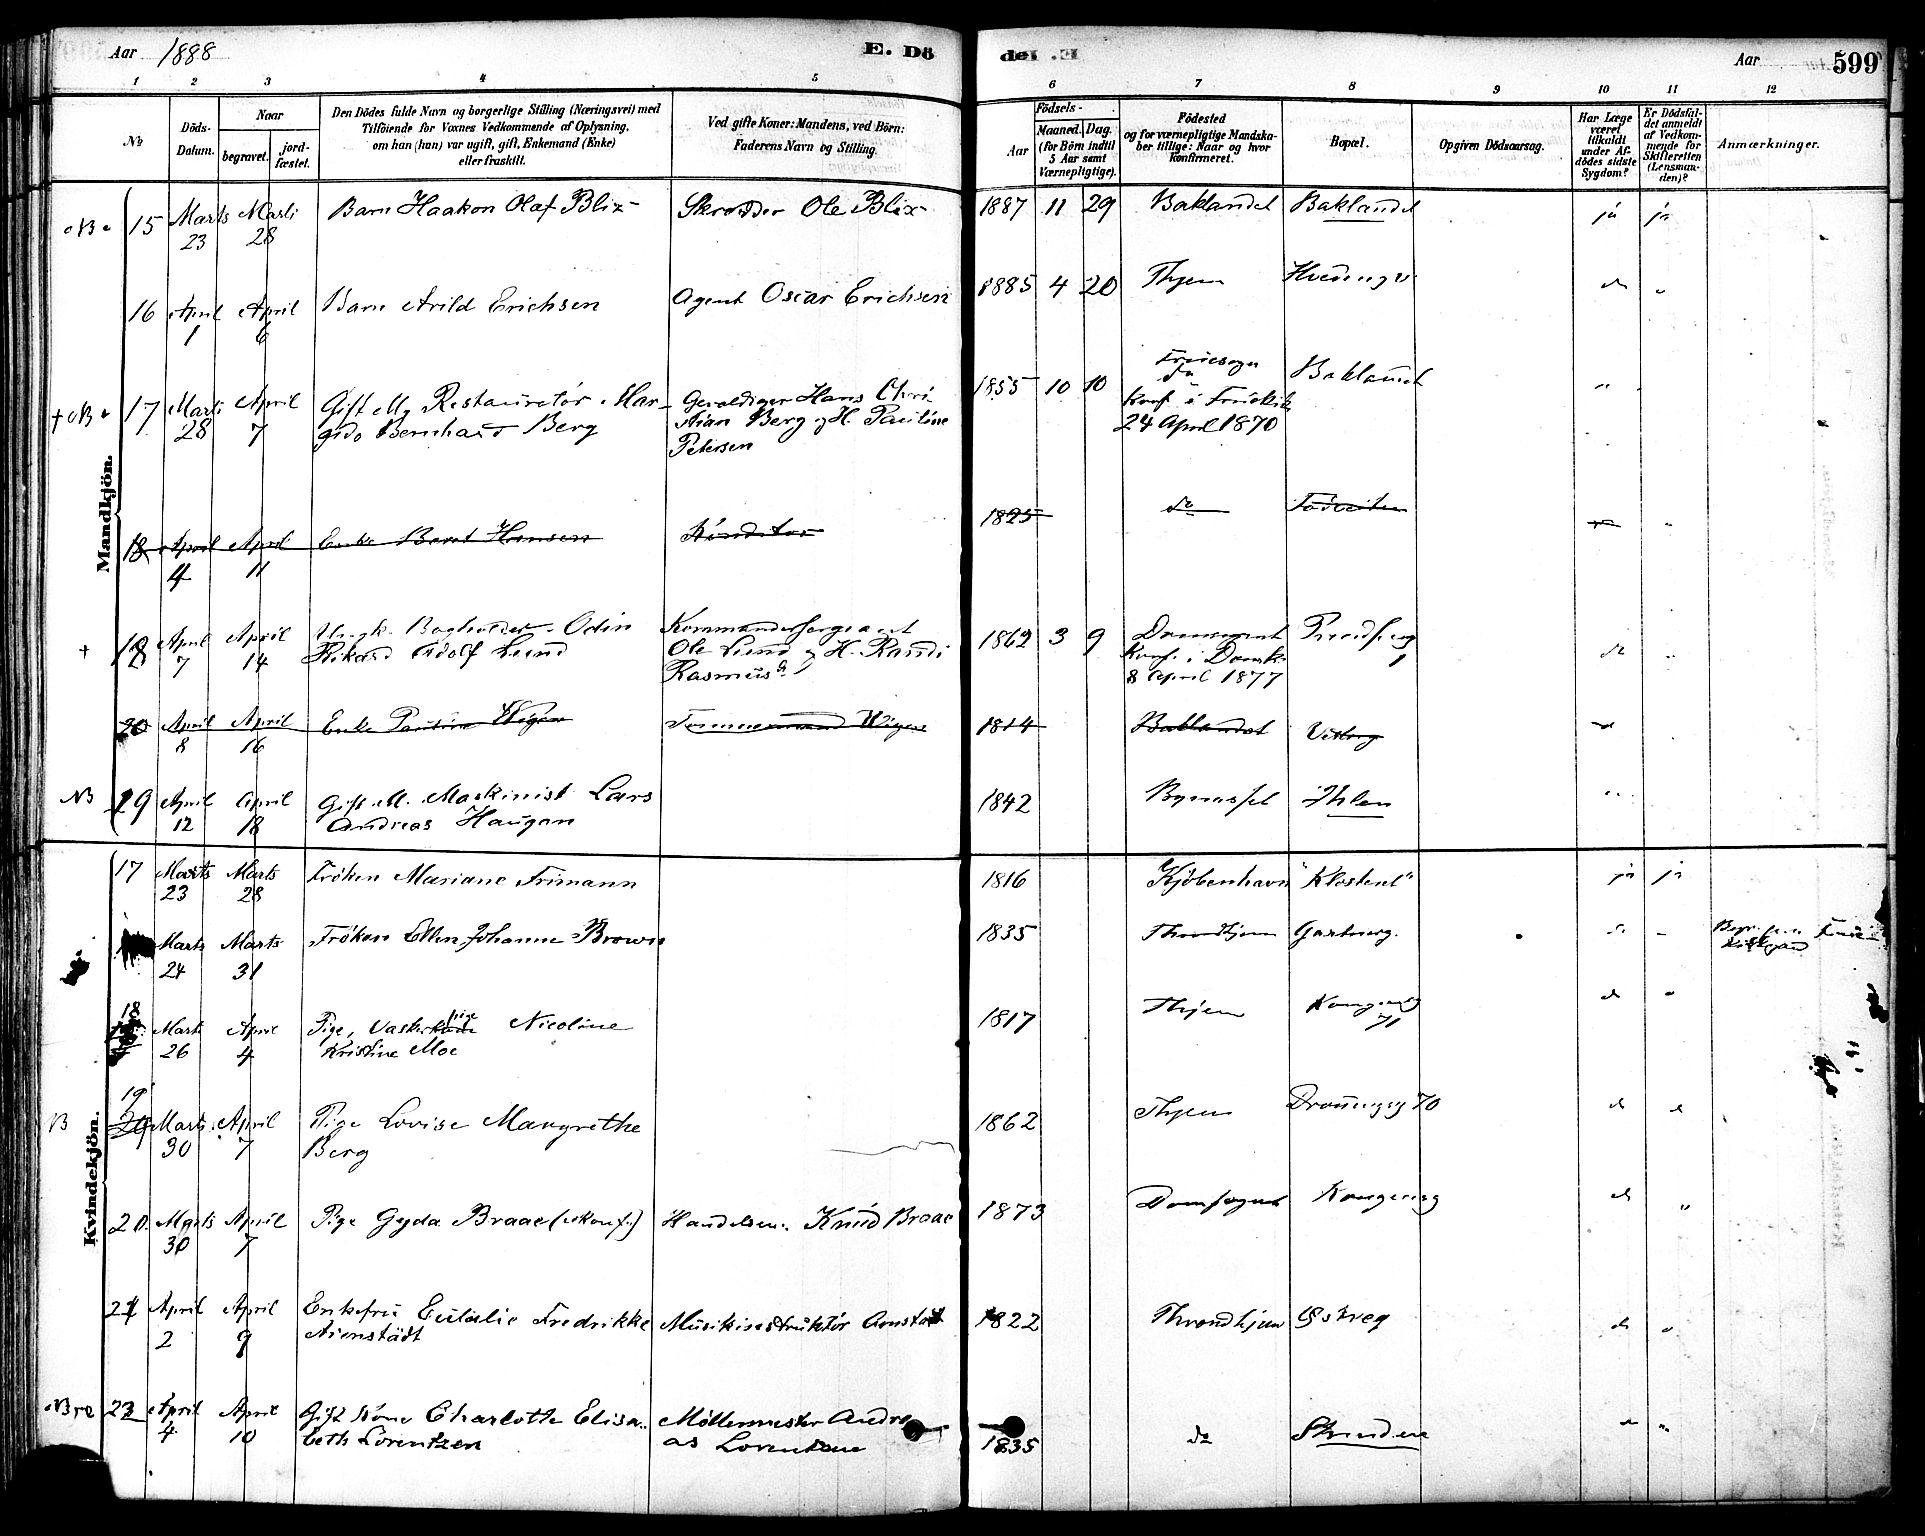 Aar 1888
E. Dö
de. E.
Aar
599
1 2 3 4 5 6 7 8 9 10 11 12
№
Döds-Datum.
Naar
begravet.
jord-fæstet.
Den Dödes fulde Navn og borgerlige Stilling (Næringsvei) med
Tilföiende for Voxnes Vedkommende af Oplysning,
om han (hun) var ugift, gift, Enkemand (Enke)
eller fraskilt.
Ved gifte Koner: Mandens, ved Börn:
Faderens Navn og Stilling.
Födsels-
Aar
Maaned. Dag.
(for Börn indtil
5 Aar samt
Værnepligtige).
Födested
og for værnepligtige Mandska-
ber tillige: Naar og hvor
konfirmeret.
Bopæl.
Opgiven Dödsaarsag.
Har Læge
været
tilkaldt
under Af-
dödes sidste
Sygdom?
Er Dödsfal-
det anmeldt
af Vedkom-
mende for
Skifteretten
(Lensman-
den)?
Anmærkninger.
Mandkjön.
15 Marts 23 Marts 28 Barn Haakon Olaf Blix Skrædder Ole Blix 1887 11 29 Baklandet Baklandet ja ja
16 April 1 April 6 Barn Arild Erichsen Agent Oscar Erichsen 1885 4 20 Thjem
17 Marts 28 April 7 Gift M. Restauratør Mar-
gido Bernhard Berg
Hans Chri-
stian Berg og H. Pauline
Petersen
1855 10 10
Konf. i
24 April 1870
Baklandet
18 April 4 April 11 Enke Beret Hansen Konditor 1825 do
18 April 7 April 14 Ungk. Bogholder Odin
Rikard Adolf Lund
Kommandersergeant
Ole Lund og H. Randi
Rasmusd.
1862 3 9
Konf. i Domk.
8 April 1877
20 April 8 April 16 Enke Pauline Wigen Tømmermand Wigen 1814 Baklandet
NB 19 April 12 April 18 Gift M. Maskinist Lars
Andreas Haugan
1842 Bynesset Ihlen
Kvindekjön.
17 Marts 23 Marts 28 Frøken Mariane Frimann 1816 Kjøbenhavn "Klosteret" ja ja
Marts 24 Marts 31 Frøken Ellen Johanne Brown 1835 Throndhjem Gartnerg.
18 Marts 26 April 4 Pige, Vaskerkone pige Nicoline
Kristine Moe
1817 Thjem Kongensg 71
19 Marts 30 April 7 Pige Lovise Margrethe
Berg
1862 Thjem Dronningsg 70
20. Marts 30 April 7 Pige Gyda Braae (ukonf.) Handelsm. Knud Braae 1873 Domsognet Kongensg
21 April 2 April 9 Enkefru Eulalie Fredrikke
Arenstädt
Musikinstruktør 1822 Throndhjem
22 April 4 April 10 Gift Kone Charlotte Elisa-
beth Lorentzen
Møllermester Andre-
as Lorentzen
1835 do Strinden